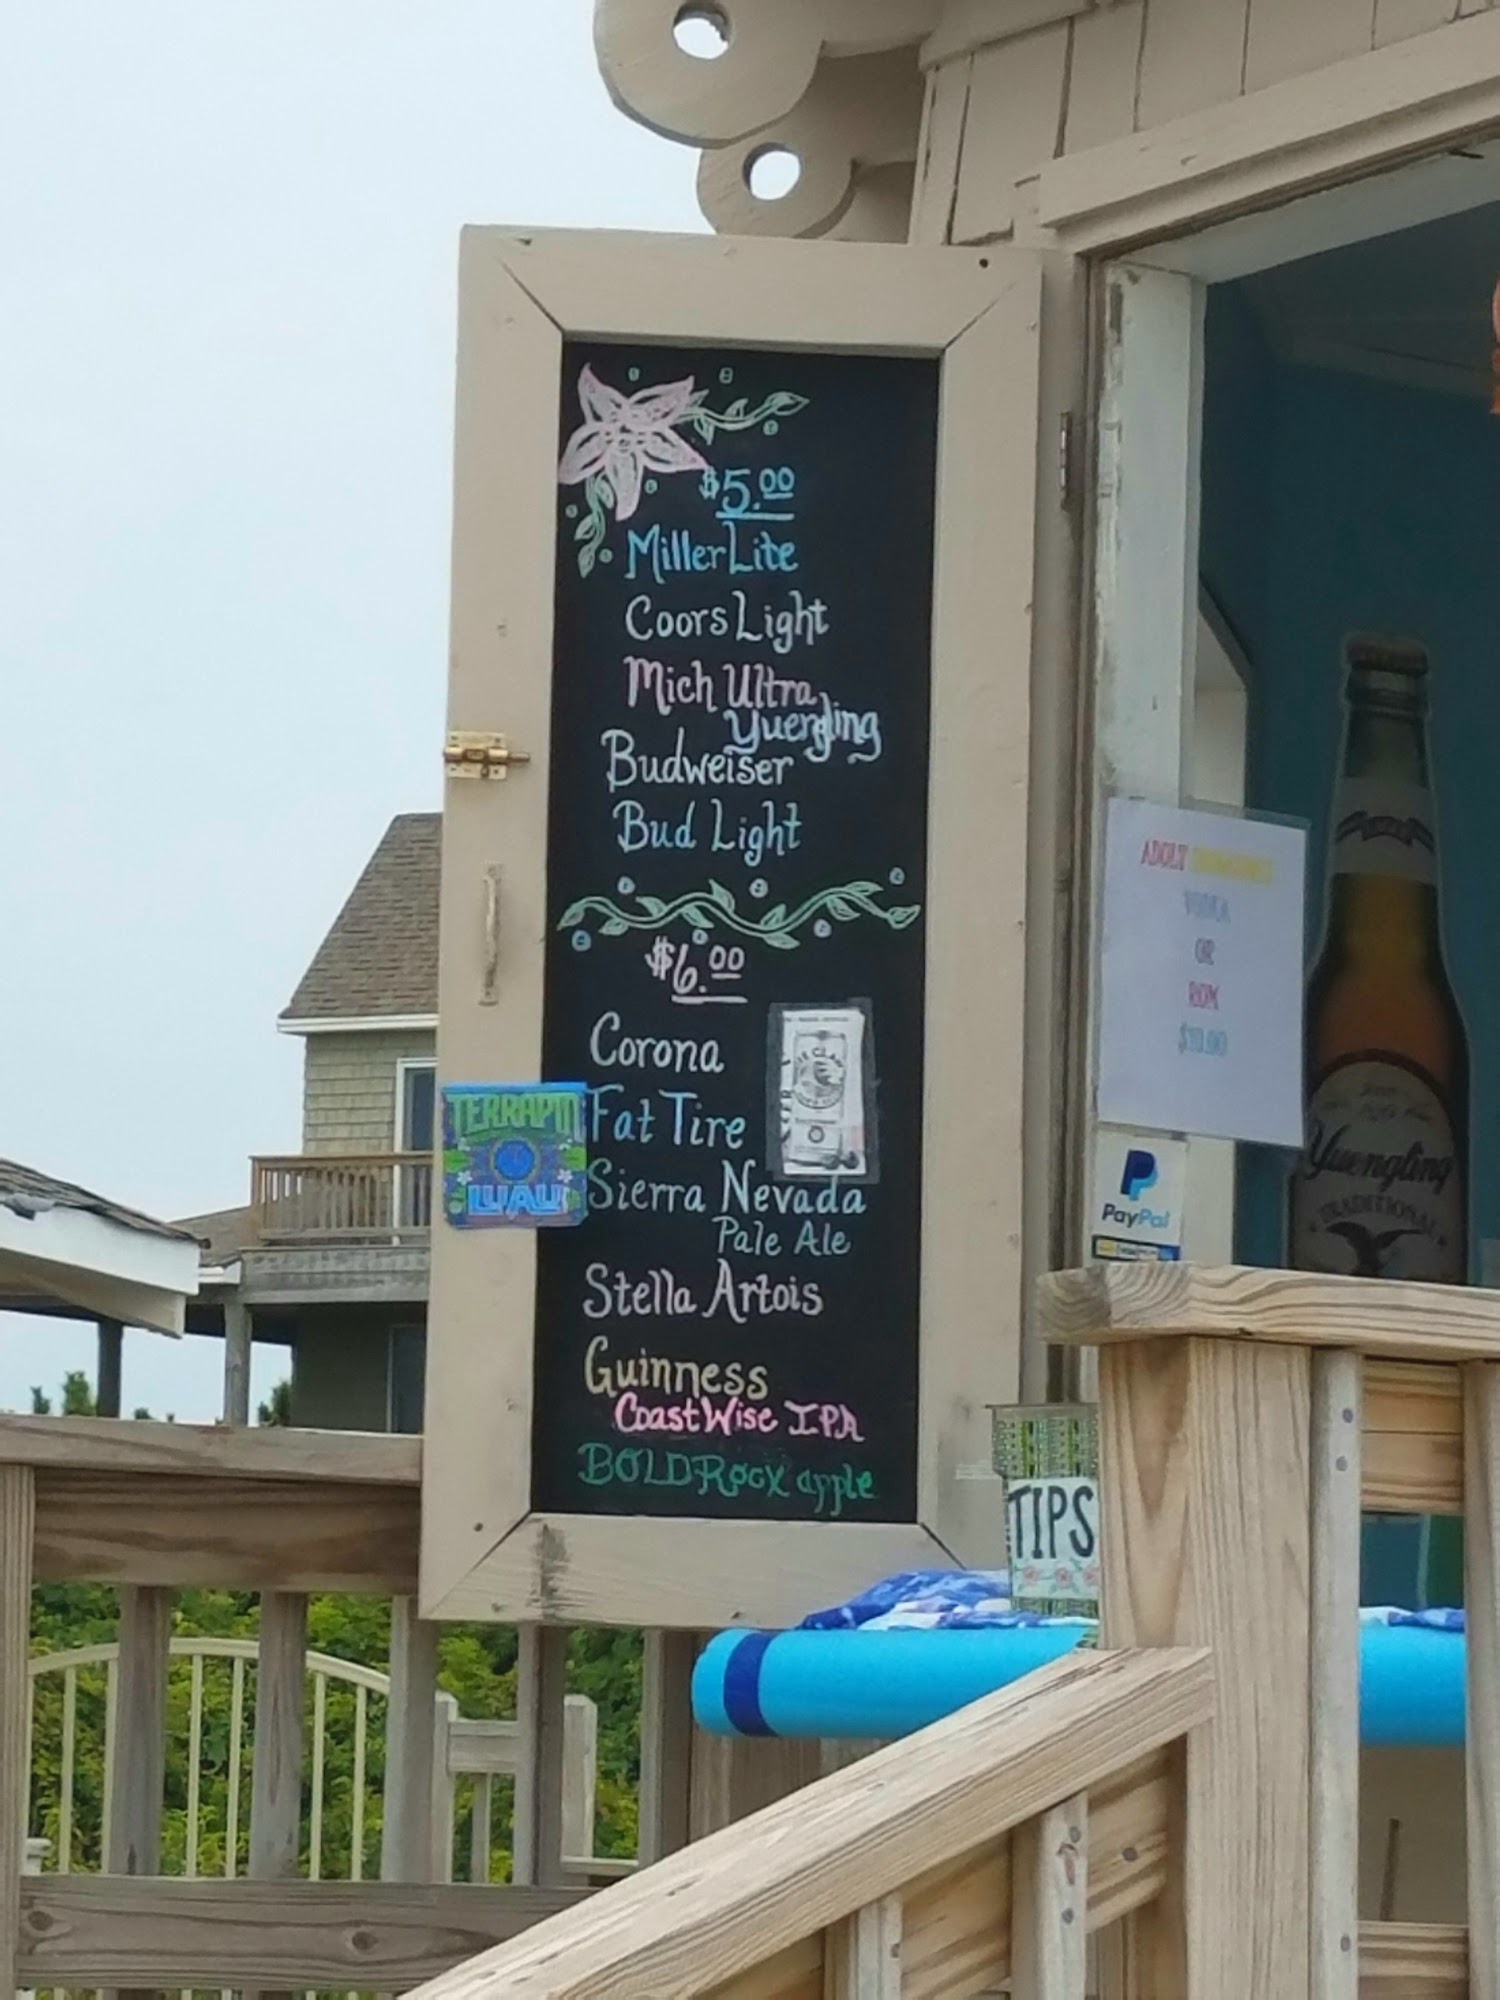 $5.00
Miller Lite
Coors Light
Mich Ultra
Yuengling
Budweiser
Bud Light
$6.00
Corona
Fat Tire
Sierra Nevada
Pale Ale
Stella Artois
Guinness
CoastWise IPA
BOLD Rock apple
TERRAPIN
LUAU
ADULT
VODKA
OR
RUM
$10.00
PayPal
Yuengling
TRADITIONAL
TIPS